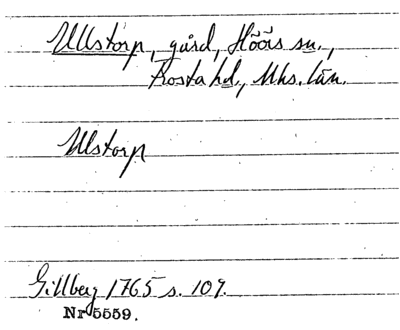 Ullstorp, gård, Höörs sn.,
Frosta hd., Mhs. län.
Ulstorp
Gillberg 1765 s. 109.
Nr 5559.